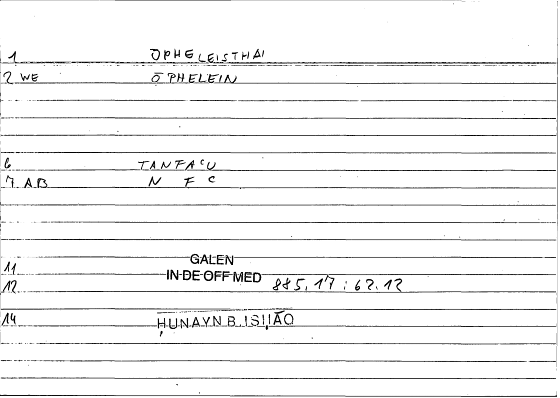 1 ŌPHELEISTHAI
2 WE ŌPHELEIN
6 TANFAᶜU
7 AB N F C
11 GALEN
12 IN DE OFF MED 885,17 : 62.12
14 ḤUNAYN B. ISḤĀQ